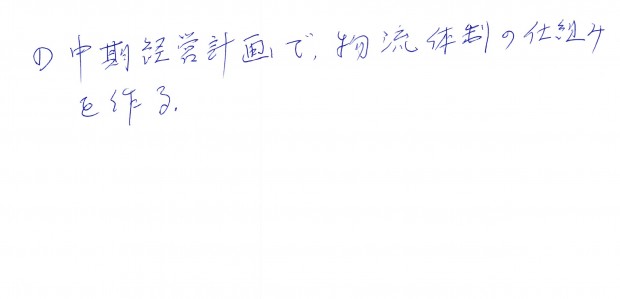 ① 中期経営計画で、物流体制の仕組み
を作る。